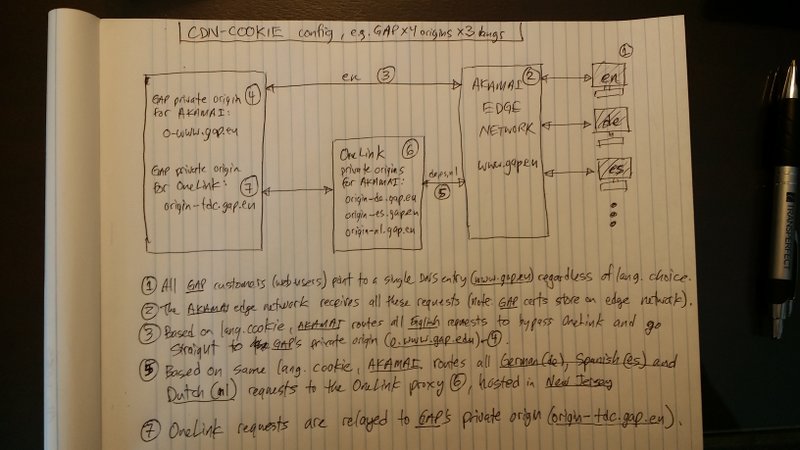 CDN-COOKIE config, e.g. GAP x4 origins x3 langs
①
en ③
AKAMAI ②
EDGE
NETWORK
www.gap.eu
en
de
es
GAP private origin ④
for AKAMAI:
o-www.gap.eu
GAP private origin
for OneLink: ⑦
origin-tdc.gap.eu
OneLink ⑥
private origins
for AKAMAI:
origin-de.gap.eu
origin-es.gap.eu
origin-nl.gap.eu
de,es,nl
⑤
① All GAP customers (web users) point to a single DNS entry (www.gap.eu) regardless of lang. choice.
② The AKAMAI edge network receives all these requests (note GAP certs store on edge network).
③ Based on lang. cookie, AKAMAI routes all English requests to bypass OneLink and go
straight to GAP's private origin (o.www.gap.edu)-④.
⑤ Based on same lang. cookie, AKAMAI routes all German (de), Spanish (es) and
Dutch (nl) requests to the OneLink proxy ⑥, hosted in New Jersey
⑦ OneLink requests are relayed to GAP's private origin (origin-tdc.gap.eu).
TRANSPERFECT